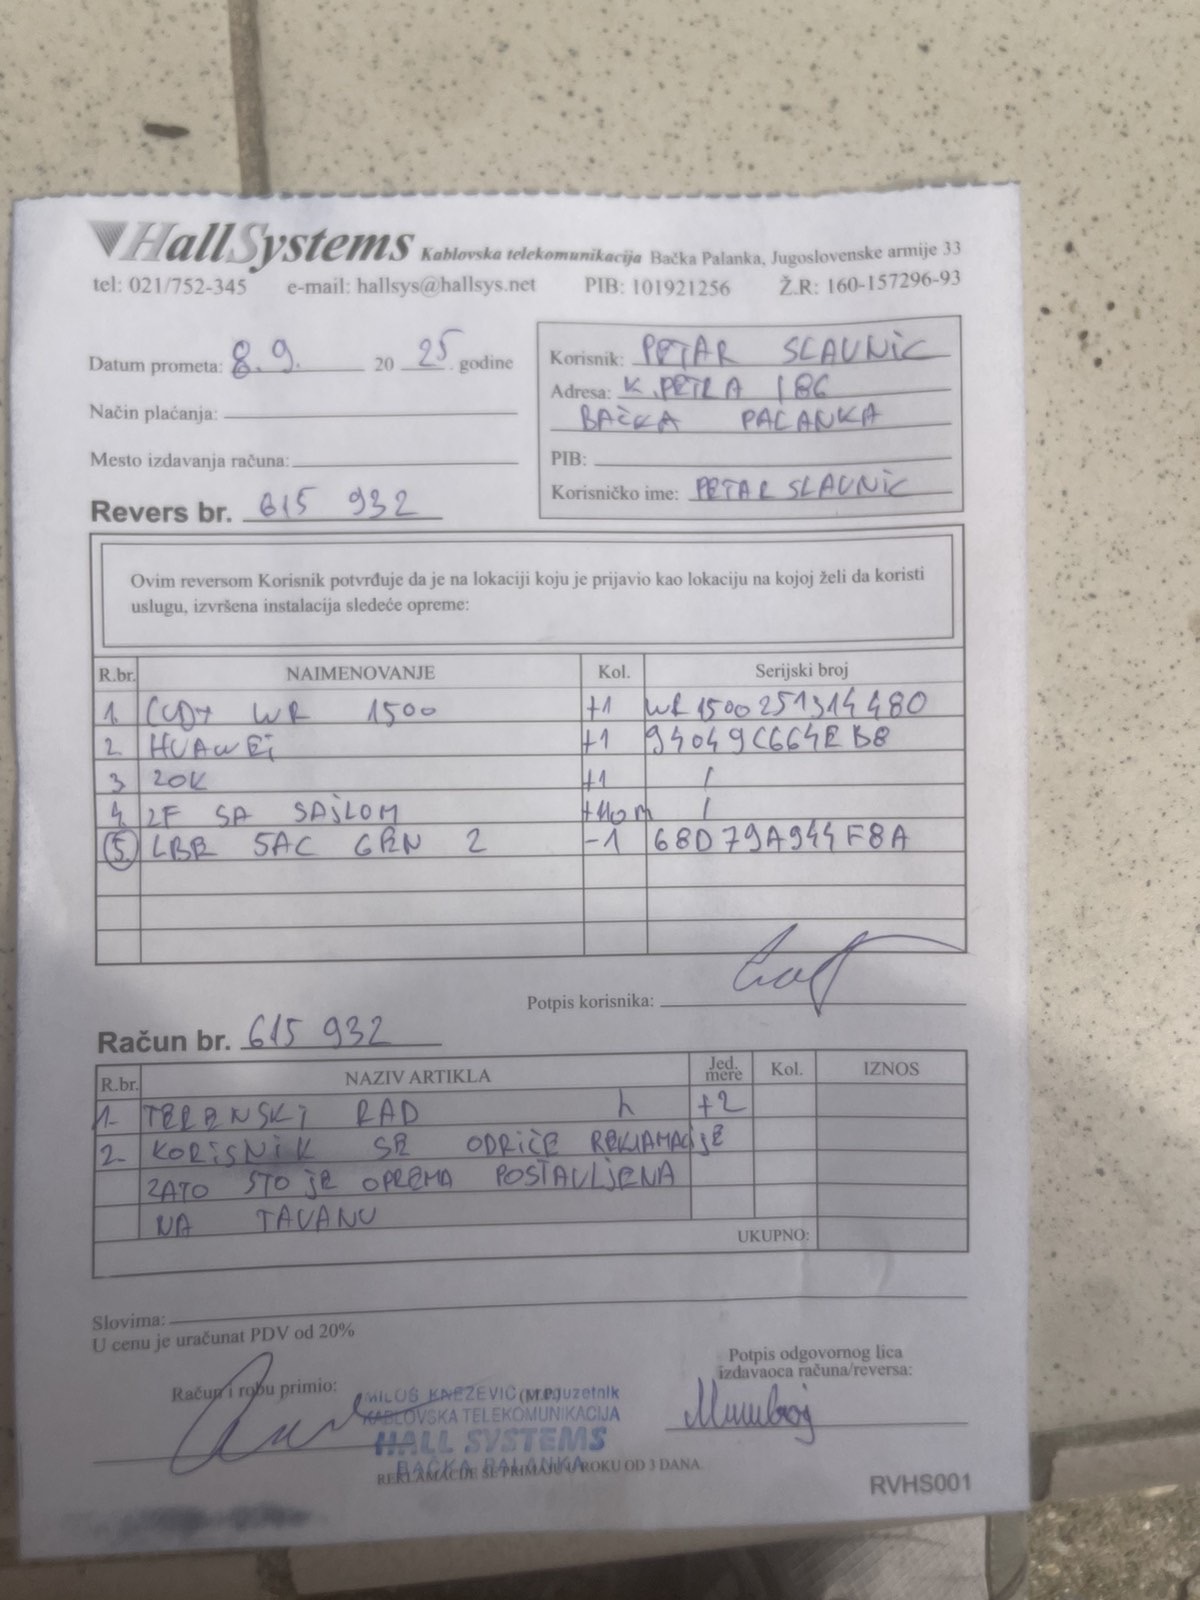 HallSystems Kablovska telekomunikacija Bačka Palanka, Jugoslovenske armije 33
tel: 021/752-345 e-mail: hallsys@hallsys.net PIB: 101921256 Ž.R: 160-157296-93
Datum prometa: 8.9. 20 25 godine
Način plaćanja:
Mesto izdavanja računa:
Revers br. 615 932
Korisnik: PETAR SLAVNIC
Adresa: K.PETRA 186
BAČKA PALANKA
PIB:
Korisničko ime: PETAR SLAVNIC
Ovim reversom Korisnik potvrđuje da je na lokaciji koju je prijavio kao lokaciju na kojoj želi da koristi
uslugu, izvršena instalacija sledeće opreme:
R.br. NAIMENOVANJE Kol. Serijski broj
1. CUDY WR 1500 +1 WR1500251314480
2 HUAWEI +1 94049C664EB8
3 20K +1 /
4 2F SA SAJLOM +110m /
5 LBE 5AC GEN 2 -1 68D79A944F8A
Potpis korisnika:
Račun br. 615 932
R.br. NAZIV ARTIKLA Jed. mere Kol. IZNOS
1. TERENSKI RAD h +2
2. KORISNIK SE ODRIČE REKLAMACIJE
ZATO STO JE OPREMA POSTAVLJENA
NA TAVANU
UKUPNO:
Slovima:
U cenu je uračunat PDV od 20%
Potpis odgovornog lica
izdavaoca računa/reversa:
Račun i robu primio:
MILOŠ KNEZEVIĆ preduzetnik
(M.P.)
KABLOVSKA TELEKOMUNIKACIJA
HALL SYSTEMS
BAČKA PALANKA
REKLAMACIJE SE PRIMAJU U ROKU OD 3 DANA.
RVHS001